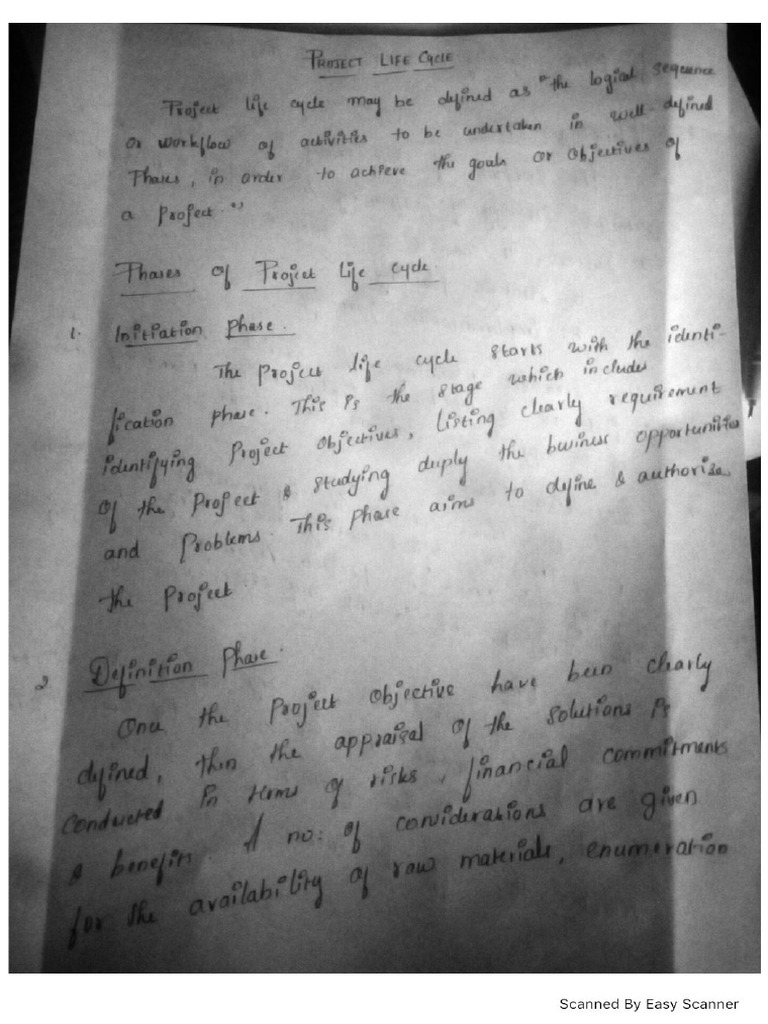 PROJECT LIFE CYCLE
Project life cycle may be defined as "the logical sequence
or workflow of activities to be undertaken in well-defined
Phases, in order to achieve the goals or objectives of
a Project"
Phases of Project Life Cycle.
1. Initiation Phase.
The project life cycle starts with the identi-
fication phase. This is the stage which includes
identifying Project objectives, listing clearly requirement
of the Project & studying deeply the business opportunities
and Problems. This phase aims to define & authorise
the Project.
2 Definition Phase.
Once the Project Objective have been clearly
defined, then the appraisal of the solutions is
conducted in terms of risks, financial commitments
& benefits. A no: of considerations are given
for the availability of raw materials, enumeration
Scanned By Easy Scanner